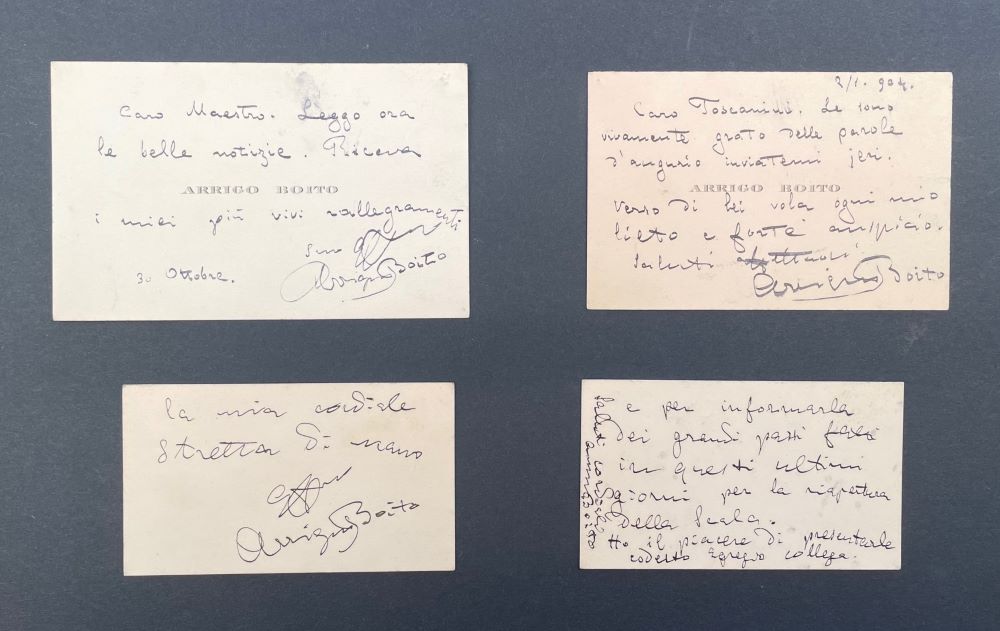 Caro Maestro. Leggo ora
le belle notizie. Riceva
ARRIGO BOITO
i miei più vivi rallegramenti
Suo
Arrigo Boito
30 Ottobre.
2/1. 904.
Caro Toscanini. Le sono
vivamente grato delle parole
d'augurio inviatemi jeri.
ARRIGO BOITO
Verso di Lei vola ogni mio
lieto e forte auspicio.
Saluti affettuosi
Arrigo Boito
la mia cordiale
stretta di mano
Arrigo Boito
e per informarla
dei grandi passi fatti
in questi ultimi
giorni per la riapertura
della Scala.
Ho il piacere di presentarle
codesto egregio collega.
Saluti cordiali
Arrigo Boito